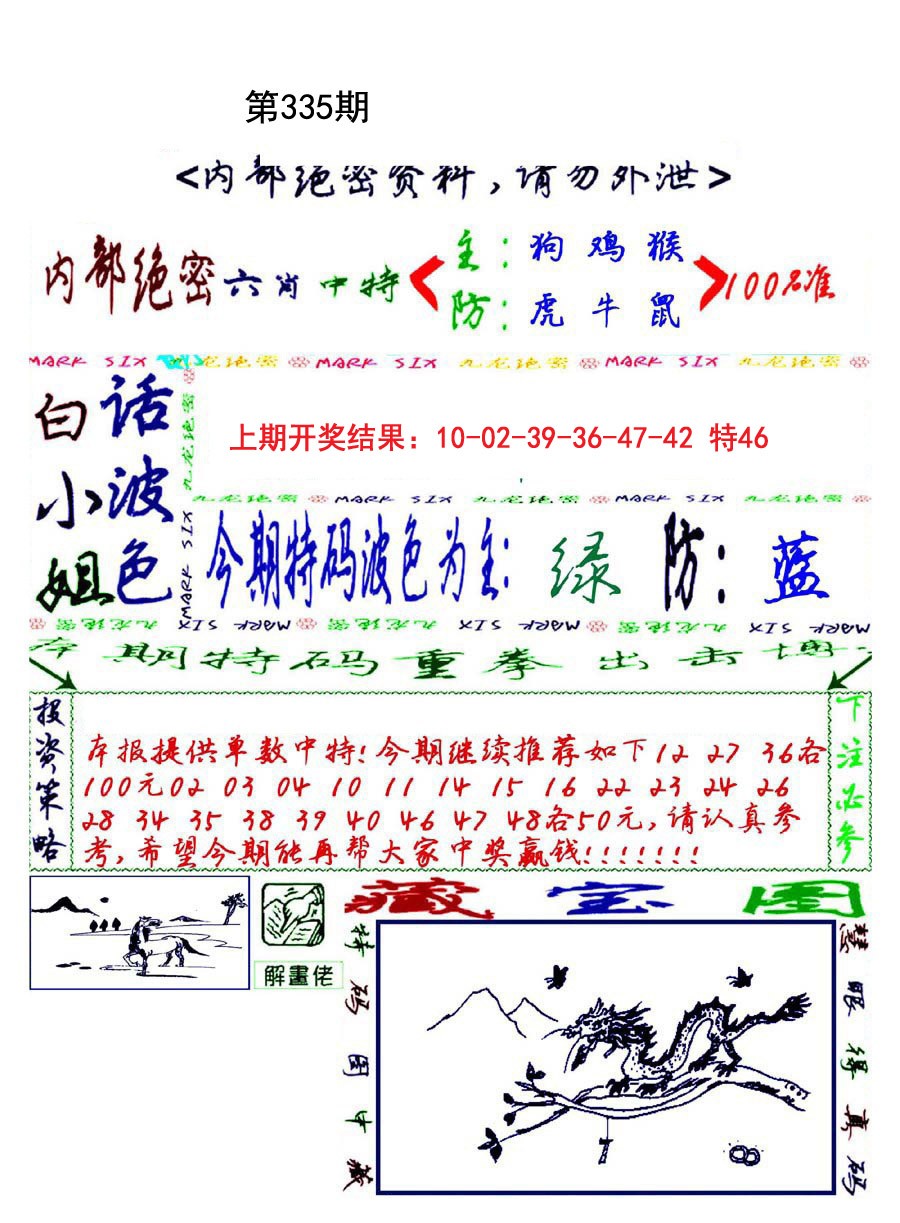 第335期
<内部绝密资料，请勿外泄>
内部绝密六肖中特
主：狗鸡猴
防：虎牛鼠
100%准
MARK SIX 九龙绝密 MARK SIX 九龙绝密 MARK SIX 九龙绝密
九龙绝密 MARK SIX
白小姐
话波色
上期开奖结果：10-02-39-36-47-42 特46
九龙绝密 MARK SIX 九龙绝密 MARK SIX 九龙绝密
今期特码波色为主：绿 防：蓝
九龙绝密 MARK SIX 九龙绝密 MARK SIX 九龙绝密 MARK SIX
本期特码重拳出击博
投资策略
本报提供单数中特!今期继续推荐如下12 27 36各
100元02 03 04 10 11 14 15 16 22 23 24 26
28 34 35 38 39 40 46 47 48各50元,请认真参
考,希望今期能再帮大家中奖赢钱!!!!!!!
下注必参
解畫佬
藏宝图
特码图中藏
慧眼得真码
8